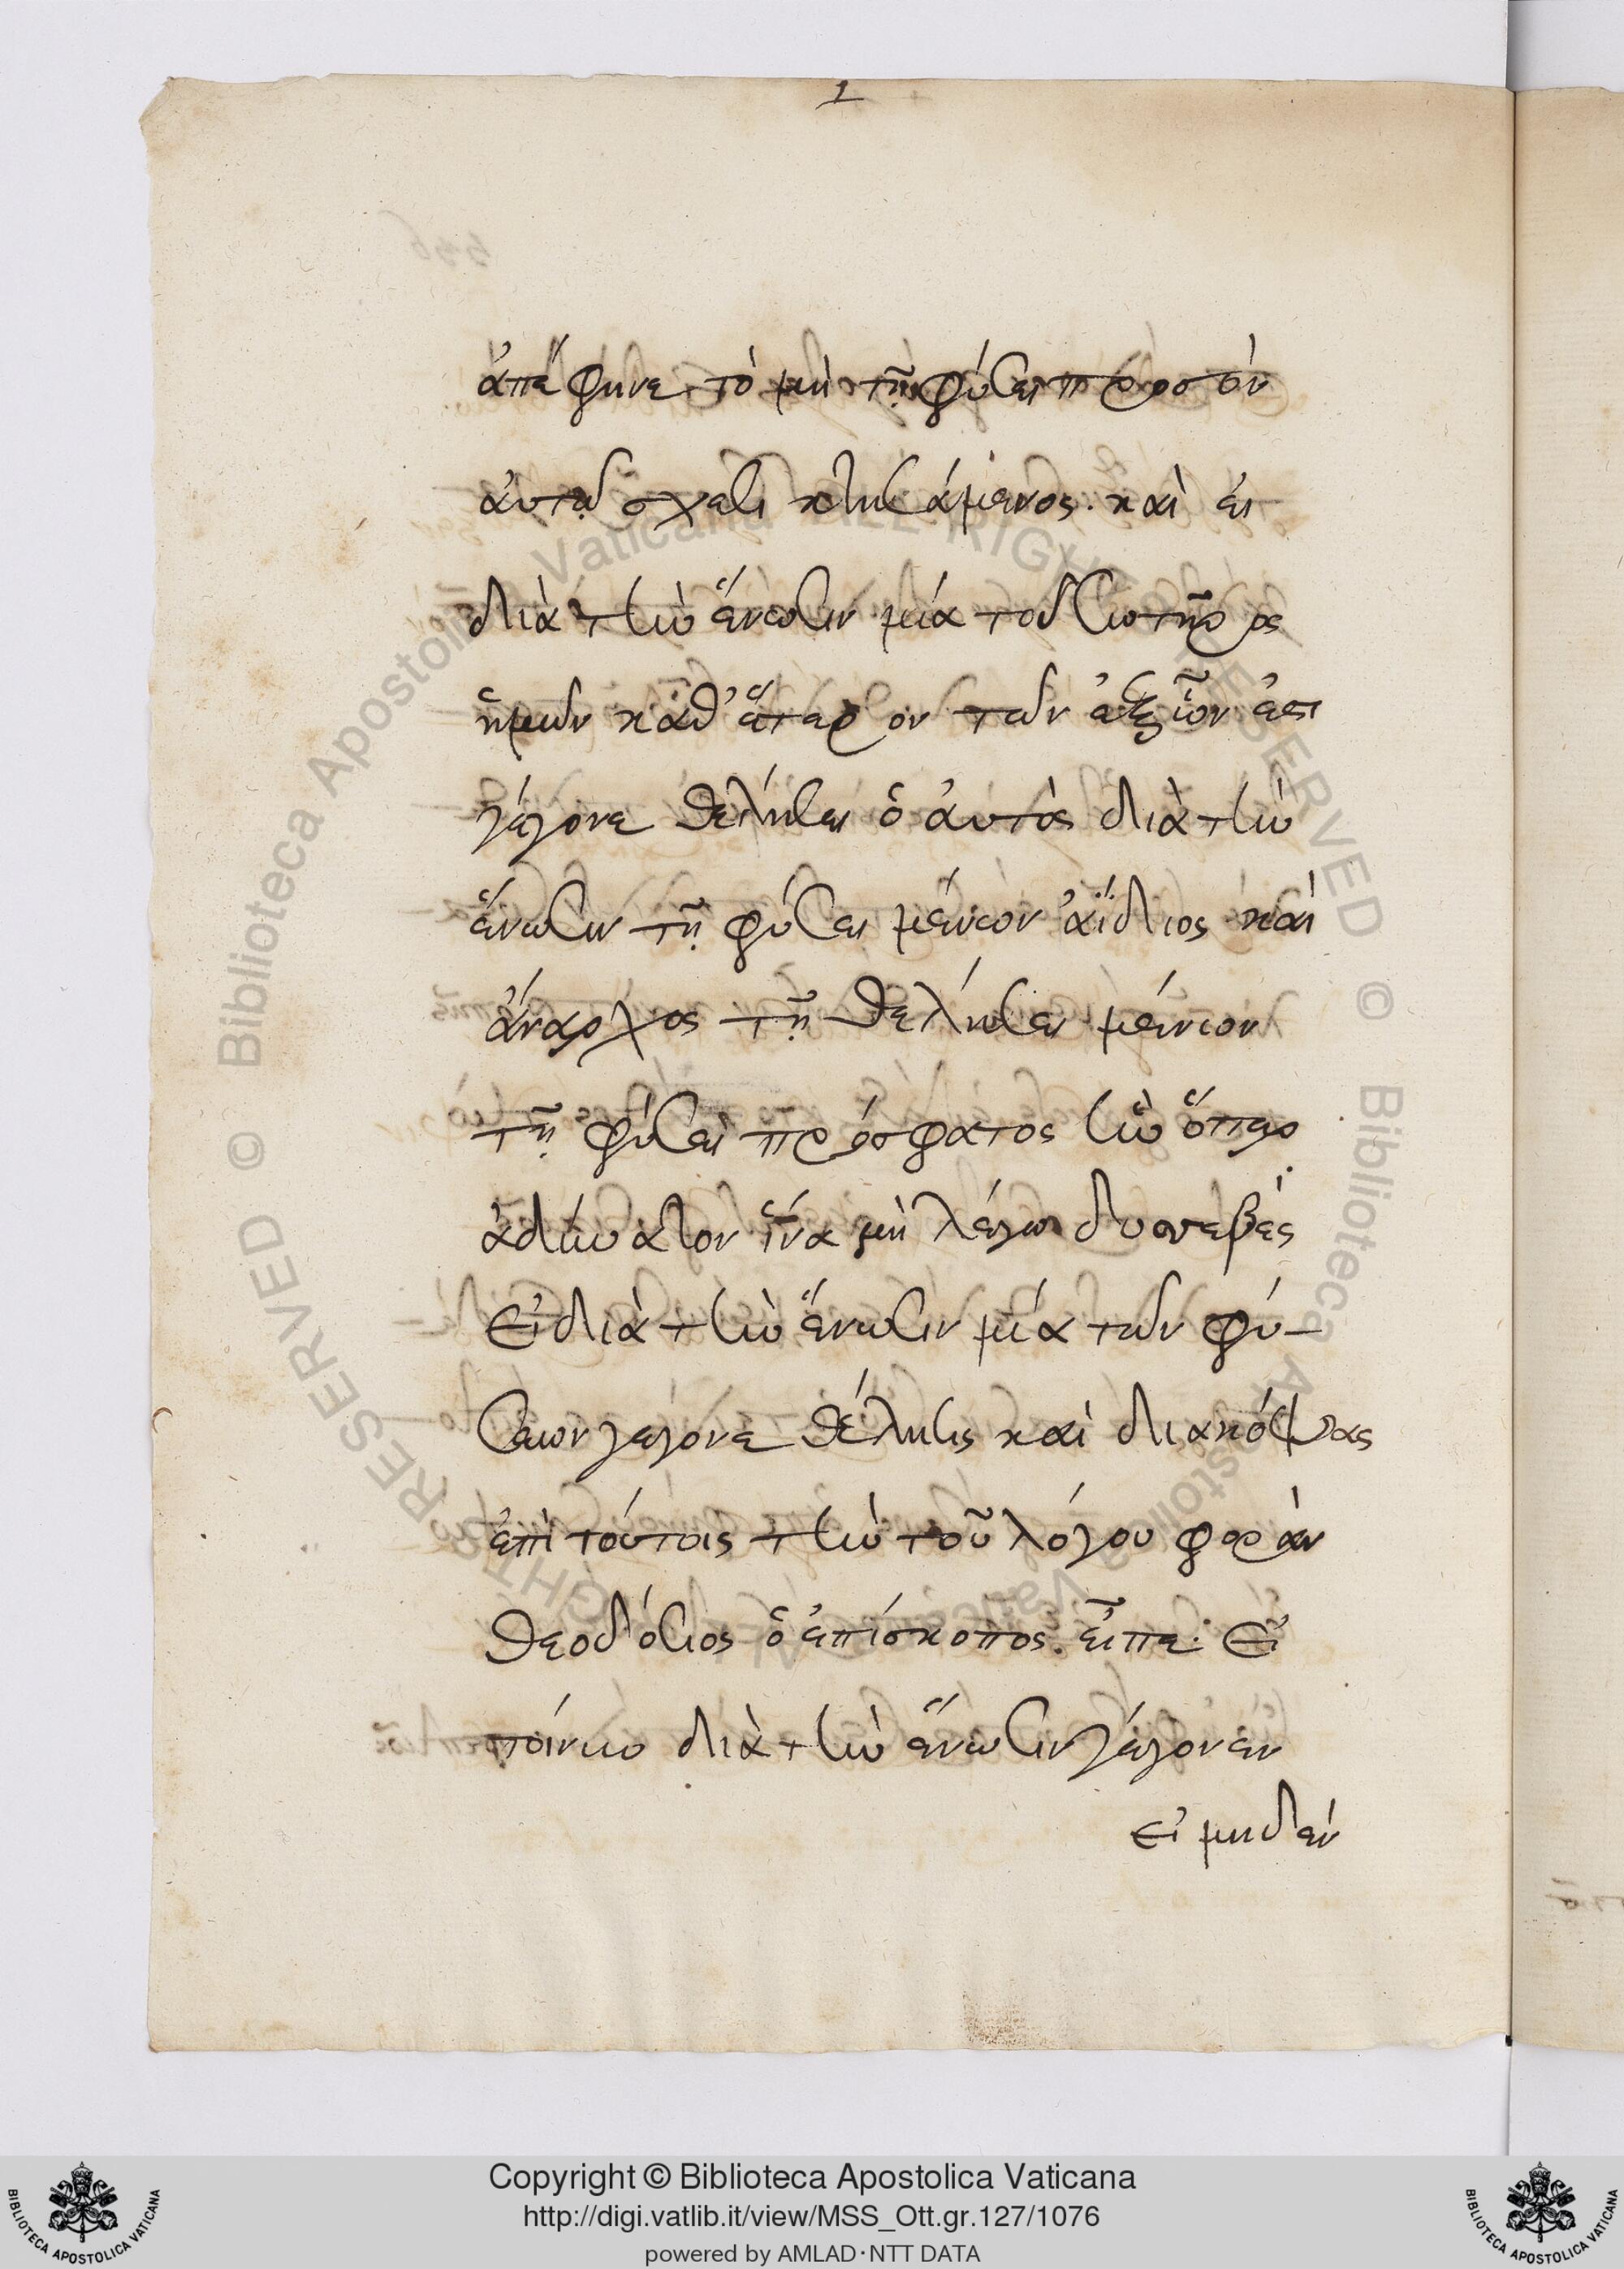 1
ἀπέφηνε τὸ μὴ τῇ φύσει προσὸν
ἀυτῷ σχέσει κτησάμενος. καὶ ἐι
διὰ τὴν ἕνωσιν μία τοῦ σωτῆρος
ἡμῶν καθ' ἕτερον τῶν ἐξ ὧν ἐστι
γέγονε θελήσει ὁ ἀυτὸς διὰ τὴν
ἕνωσιν τῇ φύσει μένων ἀΐδιος καὶ
ἄναρχος τῇ θελήσει μένων
τῇ φύσει πρόσφατος ἦν ὅπερ
ἀδύνατον ἵνα μὴ λέγω δυσσεβές
Εἰ διὰ τὴν ἕνωσιν μία τῶν φύ-
σεων γέγονε θέλησις καὶ διακόψας
ἐπὶ τούτοις τὴν τοῦ λόγου φορὰν
Θεοδόσιος ὁ ἐπίσκοπος εἶπε. Εἰ
τοίνυν διὰ τὴν ἕνωσιν γέγονεν
εἰ μηδὲν
Copyright © Biblioteca Apostolica Vaticana
http://digi.vatlib.it/view/MSS_Ott.gr.127/1076
powered by AMLAD·NTT DATA
BIBLIOTECA APOSTOLICA VATICANA
BIBLIOTECA APOSTOLICA VATICANA
© Biblioteca Apostolica Vaticana ALL RIGHTS RESERVED © Biblioteca Apostolica Vaticana ALL RIGHTS RESERVED